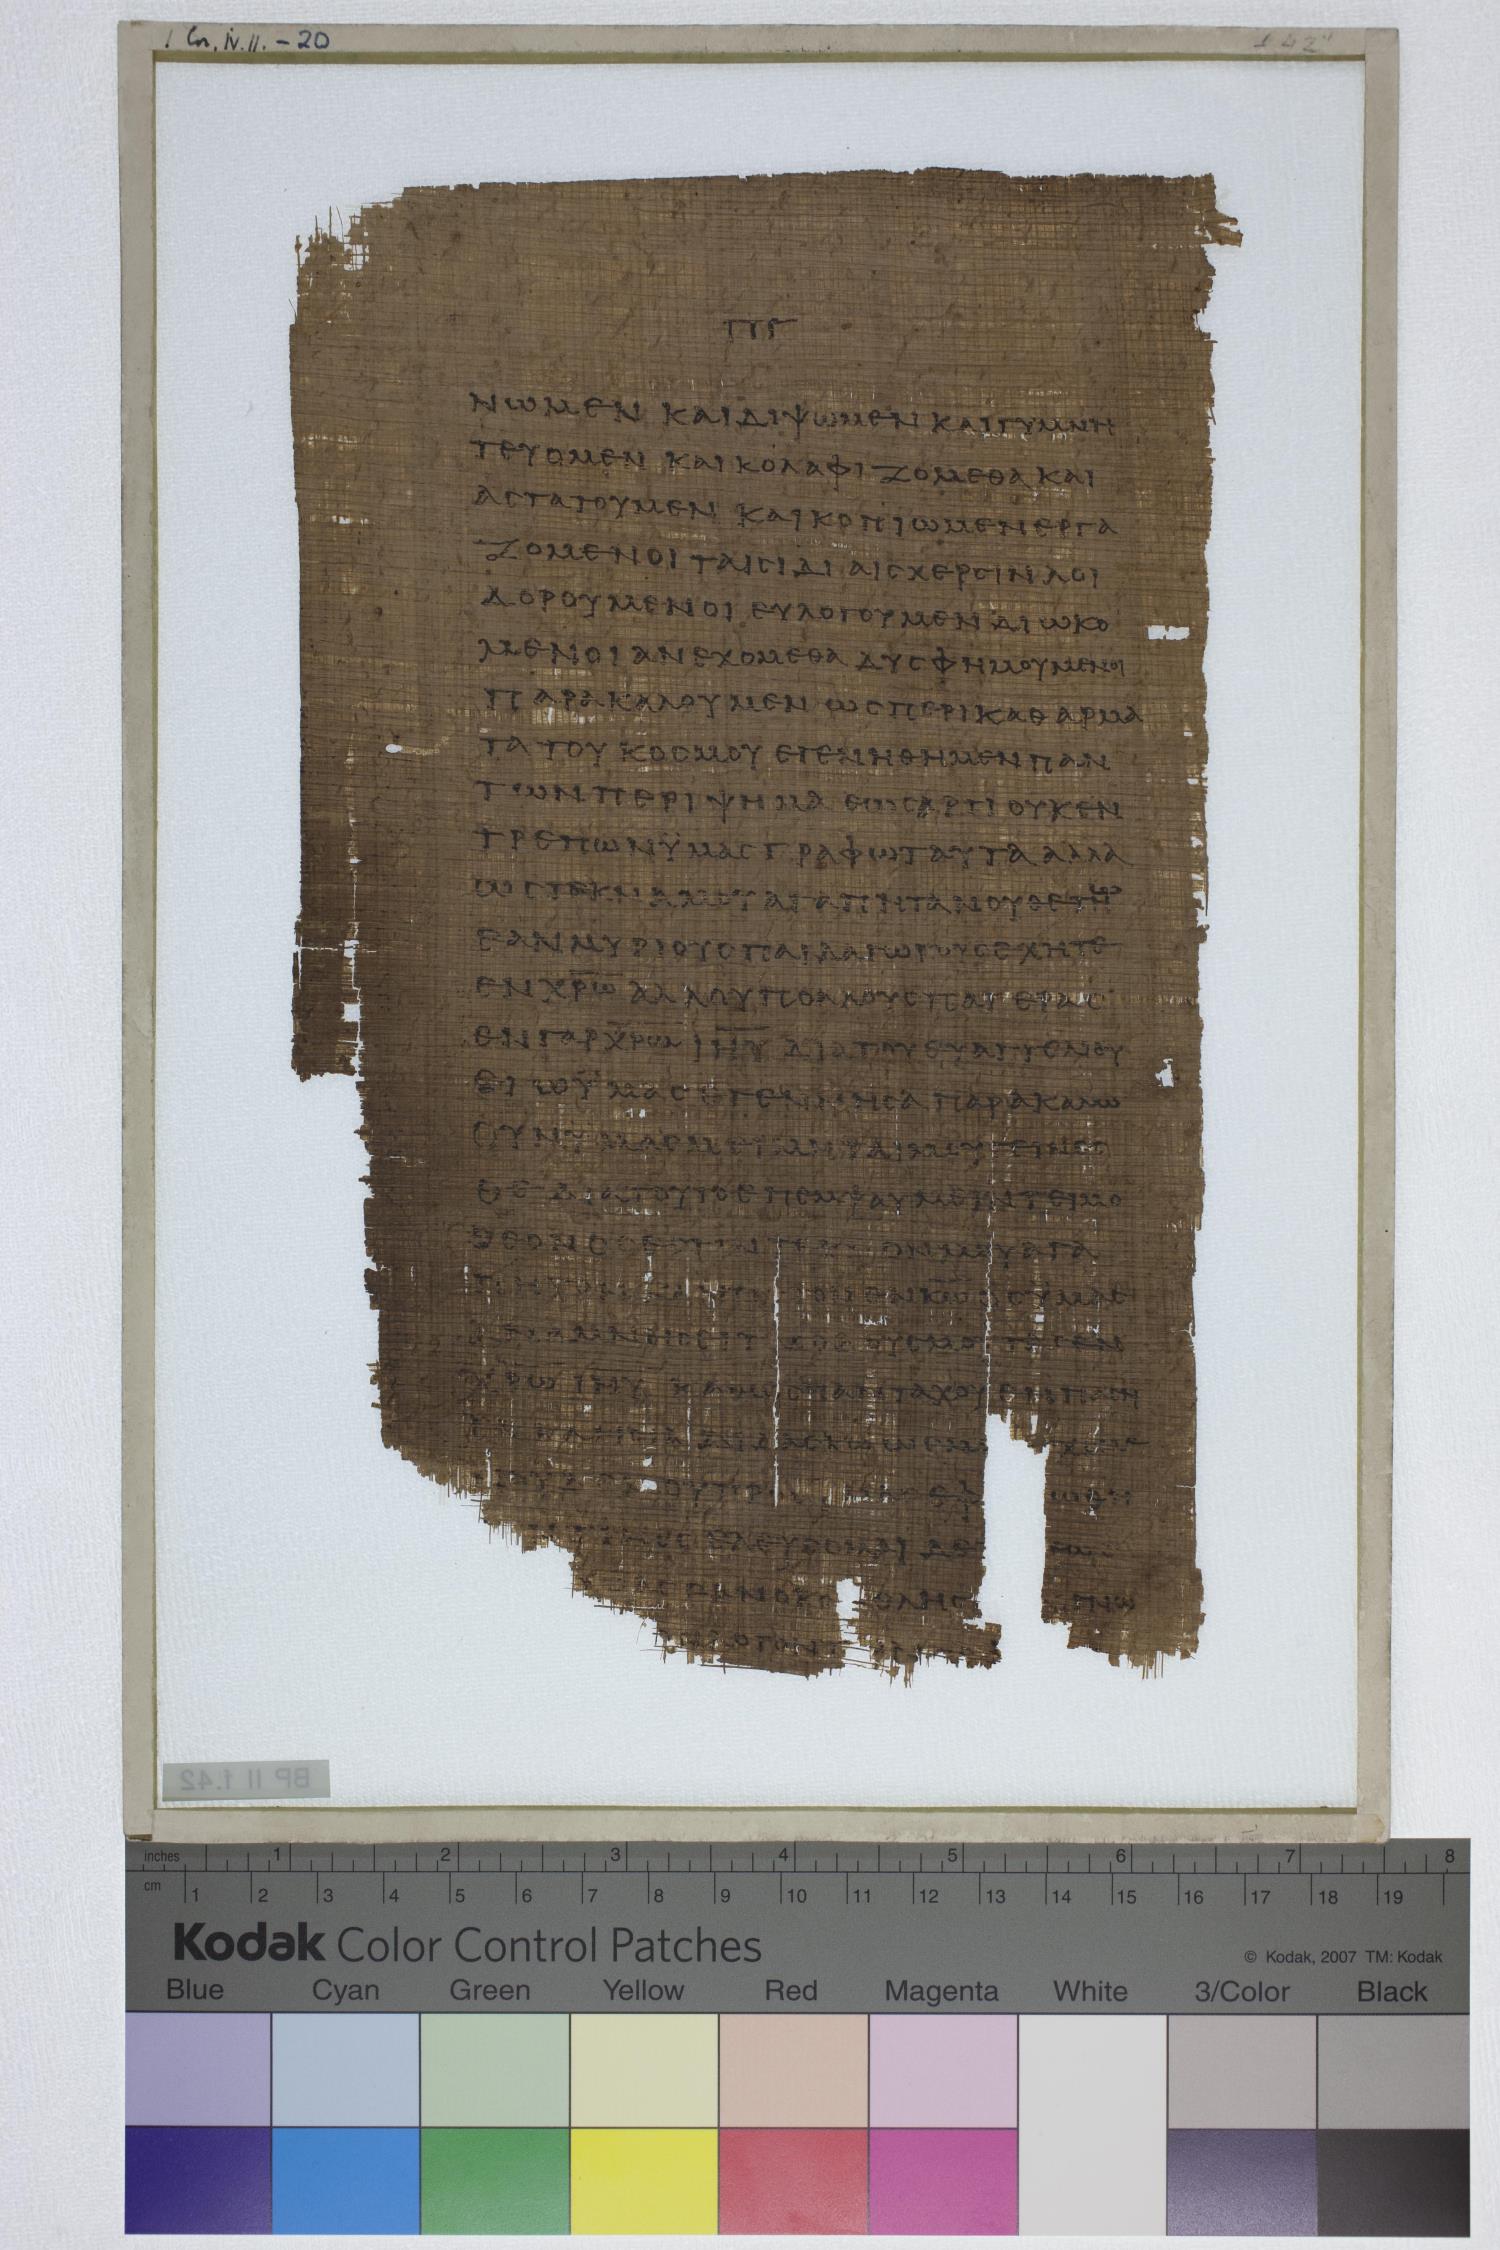 1 Cor. iv. 11. - 20
142
ΠΓ
ΝΩΜΕΝ ΚΑΙ ΔΙΨΩΜΕΝ ΚΑΙ ΓΥΜΝΗ
ΤΕΥΟΜΕΝ ΚΑΙ ΚΟΛΑΦΙΖΟΜΕΘΑ ΚΑΙ
ΑΣΤΑΤΟΥΜΕΝ ΚΑΙ ΚΟΠΙΩΜΕΝ ΕΡΓΑ
ΖΟΜΕΝΟΙ ΤΑΙΣ ΙΔΙΑΙΣ ΧΕΡΣΙΝ ΛΟΙ
ΔΟΡΟΥΜΕΝΟΙ ΕΥΛΟΓΟΥΜΕΝ ΔΙΩΚΟ
ΜΕΝΟΙ ΑΝΕΧΟΜΕΘΑ ΔΥΣΦΗΜΟΥΜΕΝΟΙ
ΠΑΡΑΚΑΛΟΥΜΕΝ ΩΣ ΠΕΡΙΚΑΘΑΡΜΑ
ΤΑ ΤΟΥ ΚΟΣΜΟΥ ΕΓΕΝΗΘΗΜΕΝ ΠΑΝ
ΤΩΝ ΠΕΡΙΨΗΜΑ ΕΩΣ ΑΡΤΙ ΟΥΚ ΕΝ
ΤΡΕΠΩΝ ΫΜΑΣ ΓΡΑΦΩ ΤΑΥΤΑ ΑΛΛΑ
ΩΣ ΤΕΚΝΑ ΜΟΥ ΑΓΑΠΗΤΑ ΝΟΥΘΕΤΩ
ΕΑΝ ΜΥΡΙΟΥΣ ΠΑΙΔΑΓΩΓΟΥΣ ΕΧΗΤΕ
ΕΝ ΧΡΩ ΑΛΛ ΟΥ ΠΟΛΛΟΥΣ ΠΑΤΕΡΑΣ
ΕΝ ΓΑΡ ΧΡΩ ΙΗΥ ΔΙΑ ΤΟΥ ΕΥΑΓΓΕΛΙΟΥ
ΕΓΩ ΫΜΑΣ ΕΓΕΝΝΗΣΑ ΠΑΡΑΚΑΛΩ
ΟΥΝ ΥΜΑΣ ΜΙΜΗΤΑΙ ΜΟΥ ΓΕΙΝΕΣ
ΘΕ ΔΙΑ ΤΟΥΤΟ ΕΠΕΜΨΑ ΥΜΕΙΝ ΤΕΙΜΟ
ΘΕΟΝ ΟΣ ΕΣΤΙΝ ΜΟΥ ΑΓΑ
ΠΗΤΟΝ ΚΑΙ ΕΝ ΚΩ ΟΣ ΫΜΑΣ
ΤΑΣ ΟΔΟΥΣ ΜΟΥ ΤΑΣ ΕΝ
ΧΡΩ ΙΗΥ ΚΑΘΩΣ ΠΑΝΤΑΧΟΥ ΕΝ ΠΑΣΗ
ΕΚΚΛΗΣΙΑ ΔΙΔΑΣΚΩ
ΕΛΕΥΣΟΜΑΙ ΔΕ
BP II f.42
inches 1 2 3 4 5 6 7 8
cm 1 2 3 4 5 6 7 8 9 10 11 12 13 14 15 16 17 18 19
Kodak Color Control Patches
© Kodak, 2007 TM: Kodak
Blue Cyan Green Yellow Red Magenta White 3/Color Black